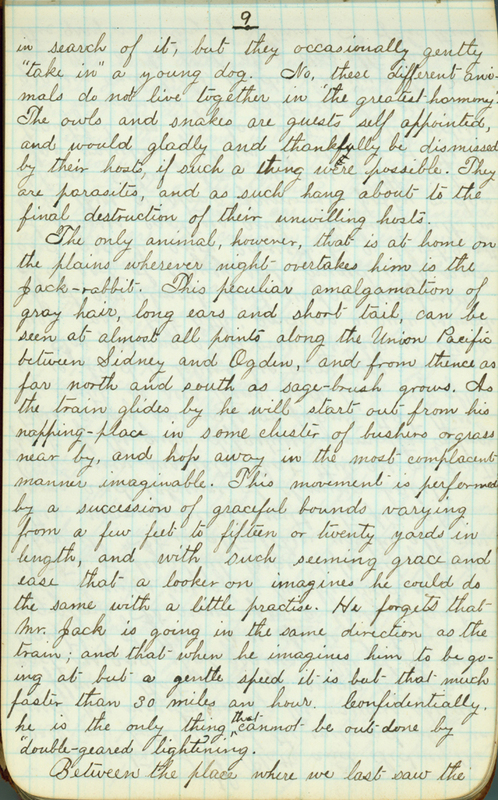 9
in search of it, but they occasionally gently
"take in" a young dog. No, these different ani-
mals do not live together in "the greatest harmony."
The owls and snakes are guests self appointed,
and would gladly and thankfully be dismissed
by their hosts, if such a thing were possible. They
are parasites, and as such hang about to the
final destruction of their unwilling hosts.
The only animal, however, that is at home on
the plains wherever night overtakes him is the
Jack-rabbit. This peculiar amalgamation of
gray hair, long ears and short tail, can be
seen at almost all points along the Union Pacific
between Sidney and Ogden, and from thence as
far north and south as sage-brush grows. As
the train glides by he will start out from his
napping-place in some cluster of bushes or grass
near by, and hop away in the most complacent
manner imaginable. This movement is performed
by a succession of graceful bounds varying
from a few feet to fifteen or twenty yards in
length, and with such seeming grace and
ease that a looker on imagines he could do
the same with a little practise. He forgets that
Mr. Jack is going in the same direction as the
train; and that when he imagines him to be go-
ing at but a gentle speed it is but that much
faster than 30 miles an hour. Confidentially,
he is the only thing that cannot be out-done by
double-geared lightening.
Between the place where we last saw the